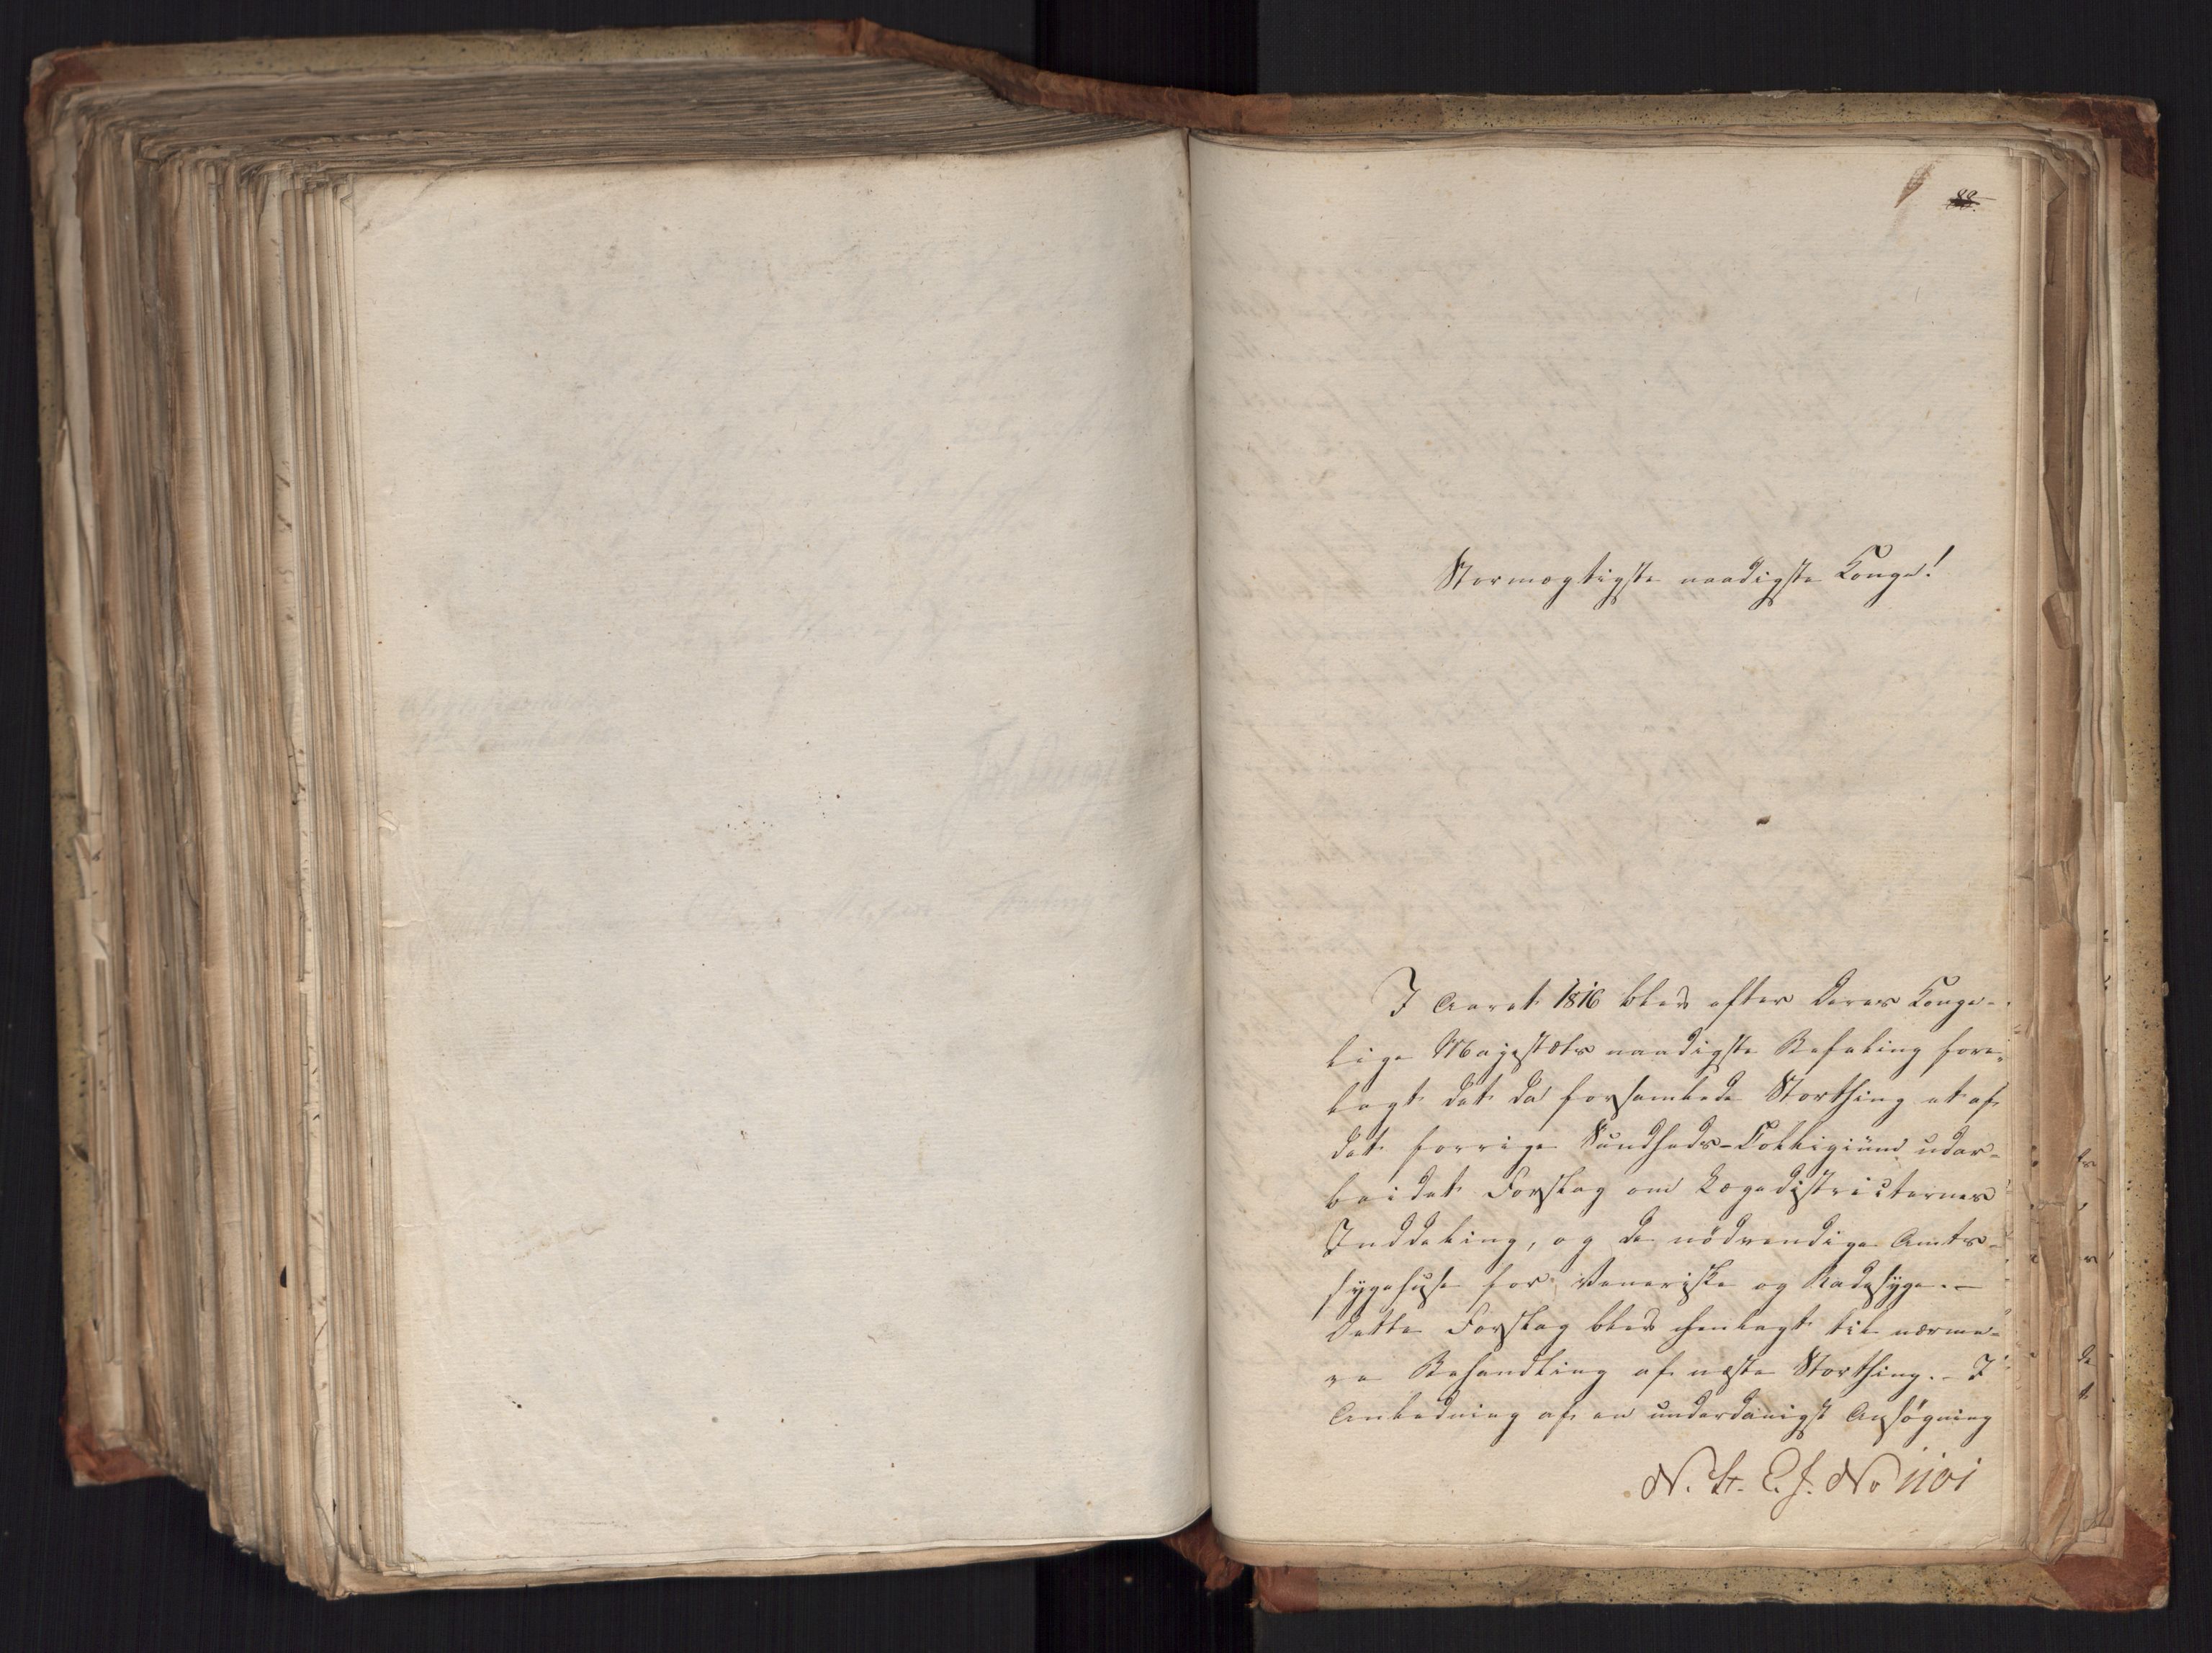 88.
Stormægtigste naadigste Konge!
I Aaret 1816 blev efter Deres Konge-
lige Majestæts naadigste Befaling fore-
lagt det da forsamlede Storthing et af
det forrige Sundheds-Collegium udar-
beidet Forslag om Lægedistricternes
Inddeling, og de nödvendige Amts-
sygehuse for Veneriske og Radesyge.-
Dette Forslag blev henlagt til nærme-
re Behandling af næste Storthing.- I
Anledning af en underdanigst Ansøgning
N. St. E. J. No 1101